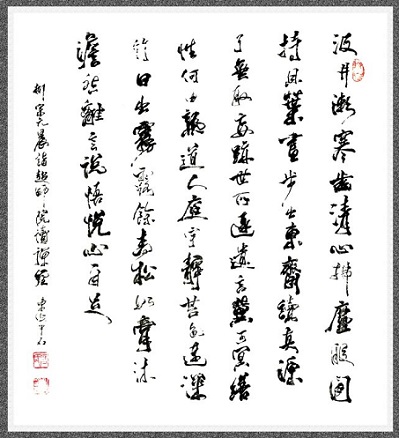 汲井漱寒齒清心拂塵服閒
持貝葉書步出東齋讀真源
了無取妄跡世所逐遺言冀可冥繕
性何由熟道人庭宇靜苔色連深
竹日出霧露餘青松如膏沐
澹然離言說悟悅心自足
柳宗元晨詣超師院讀禪經